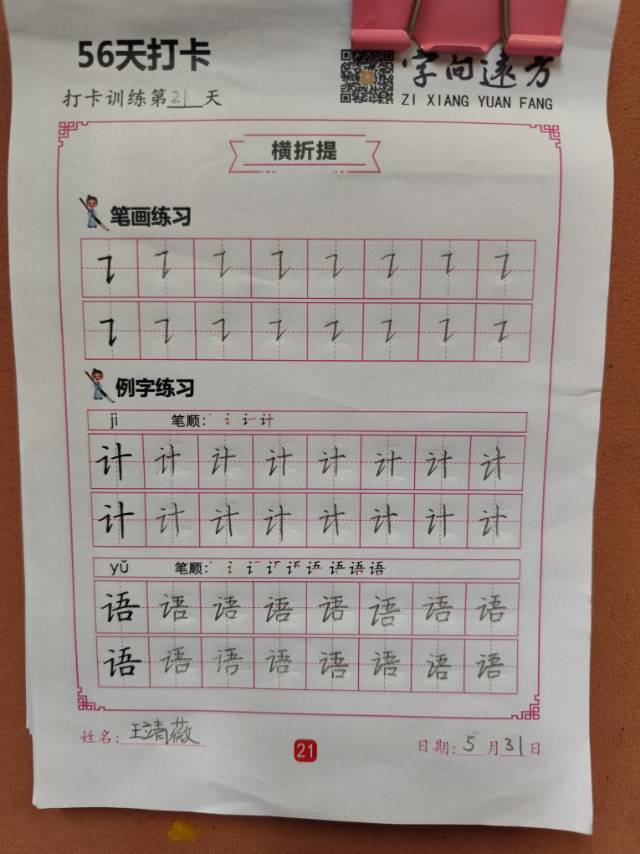 56天打卡
字向远方
打卡训练第21天
ZI XIANG YUAN FANG
横折提
笔画练习
㇊ ㇊ ㇊ ㇊ ㇊ ㇊ ㇊ ㇊
㇊ ㇊ ㇊ ㇊ ㇊ ㇊ ㇊ ㇊
例字练习
jì 笔顺: 丶 讠 计
计 计 计 计 计 计 计 计
计 计 计 计 计 计 计 计
yǔ 笔顺:
语 语 语 语 语 语 语 语
语 语 语 语 语 语 语 语
姓名: 王清薇
21
日期: 5月31日